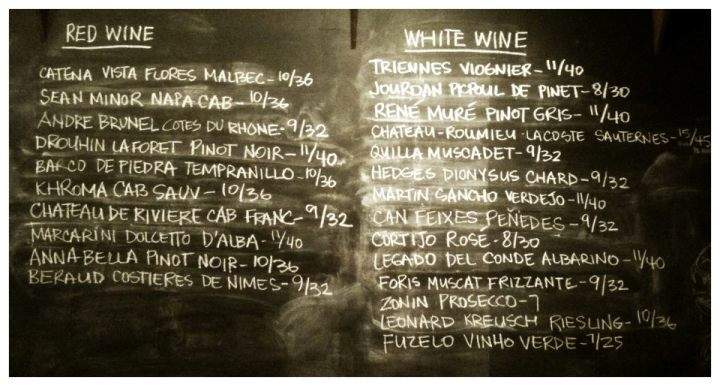 RED WINE
CATENA VISTA FLORES MALBEC-10/36
SEAN MINOR NAPA CAB-10/36
ANDRE BRUNEL COTES DU RHONE-9/32
DROUHIN LAFORET PINOT NOIR-11/40
BARCO DE PIEDRA TEMPRANILLO-10/36
KHROMA CAB SAUV-10/36
CHATEAU DE RIVIERE CAB FRANC-9/32
MARCARINI DOLCETTO D'ALBA-11/40
ANNABELLA PINOT NOIR-10/36
BERAUD COSTIERES DE NIMES-9/32
WHITE WINE
TRIENNES VIOGNIER-11/40
JOURDAN PCPOUL DE PINET-8/30
RENÉ MURÉ PINOT GRIS-11/40
CHATEAU-ROUMIEU-LACOSTE SAUTERNES-15/45
QUILLA MUSCADET-9/32
HEDGES DIONYSUS CHARD-9/32
MARTIN SANCHO VERDEJO-11/40
CAN FEIXES PEÑEDES-9/32
CORTIJO ROSE-8/30
LEGADO DEL CONDE ALBARINO-11/40
FORIS MUSCAT FRIZZANTE-9/32
ZONIN PROSECCO-7
LEONARD KREUSCH RIESLING-10/36
FUZELO VINHO VERDE-7/25